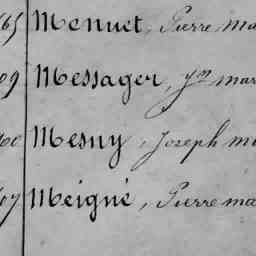 65 Menuet, Pierre ma
09 Messager, Jn mar
00 Mesny, Joseph m
07 Meigné, Pierre ma